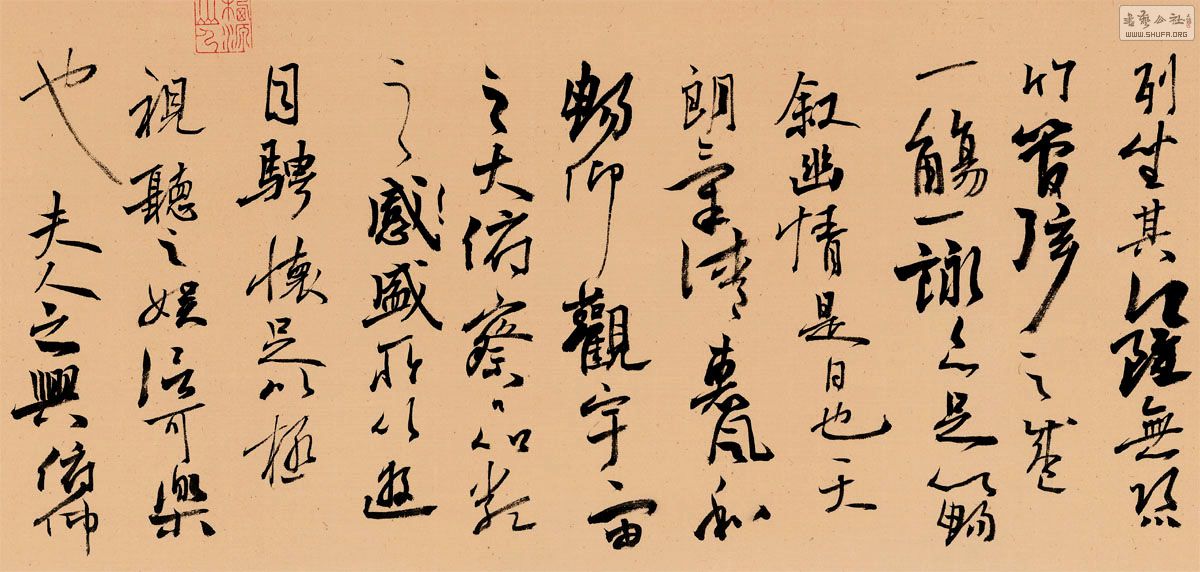 列坐其次雖無絲
竹管弦之盛
一觴一詠亦足以暢
叙幽情是日也天
朗氣清惠風和
暢仰觀宇宙
之大俯察品類
之感盛所以遊
目騁懷足以極
視聽之娛信可樂
也夫人之興俯仰
書藝公社
WWW.SHUFA.ORG